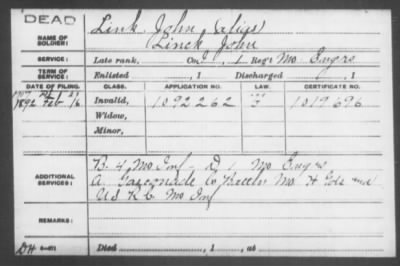 DEAD
NAME OF SOLDIER: Link, John, alias
Linck John
SERVICE: Late rank, Co. I, 1 Reg't Mo Engrs
TERM OF SERVICE: Enlisted , 1 Discharged , 1
DATE OF FILING. CLASS. APPLICATION NO. LAW. CERTIFICATE NO.
1892 Feb 16 Invalid, 1092262 1019696
Widow,
Minor,
ADDITIONAL SERVICE: B. 4, Mo Inf - D, 1 Mo Engrs
a. Gasconade Co Battln Mo H Gds and
US R C Mo Inf
REMARKS:
Died , 1 , at